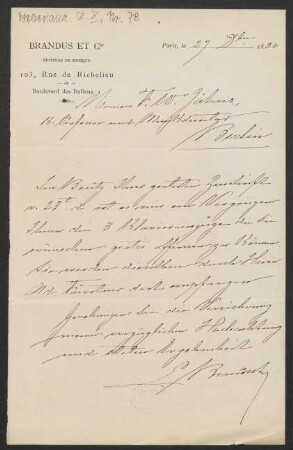 Weberiana Cl. X, Nr. 78
BRANDUS ET Cie
EDITEURS DE MUSIQUE
103, Rue de Richelieu
ET
Boulevard des Italiens
Paris, le 27 Xbre 1880
Monsieur F. W. Jähns
K. Professor und Musikdirector
Berlin
Im Besitz Ihrer geehrten Zuschrift
v. 23t d. ist es mir ein Vergnügen
Ihnen die 3 Klavierauszüge die Sie
wünschen gratis
Sie werden dieselben durch Herrn
empfangen
Genehmigen Sie die Versicherung
meiner vorzüglichen Hochachtung
und Ergebenheit
Brandus